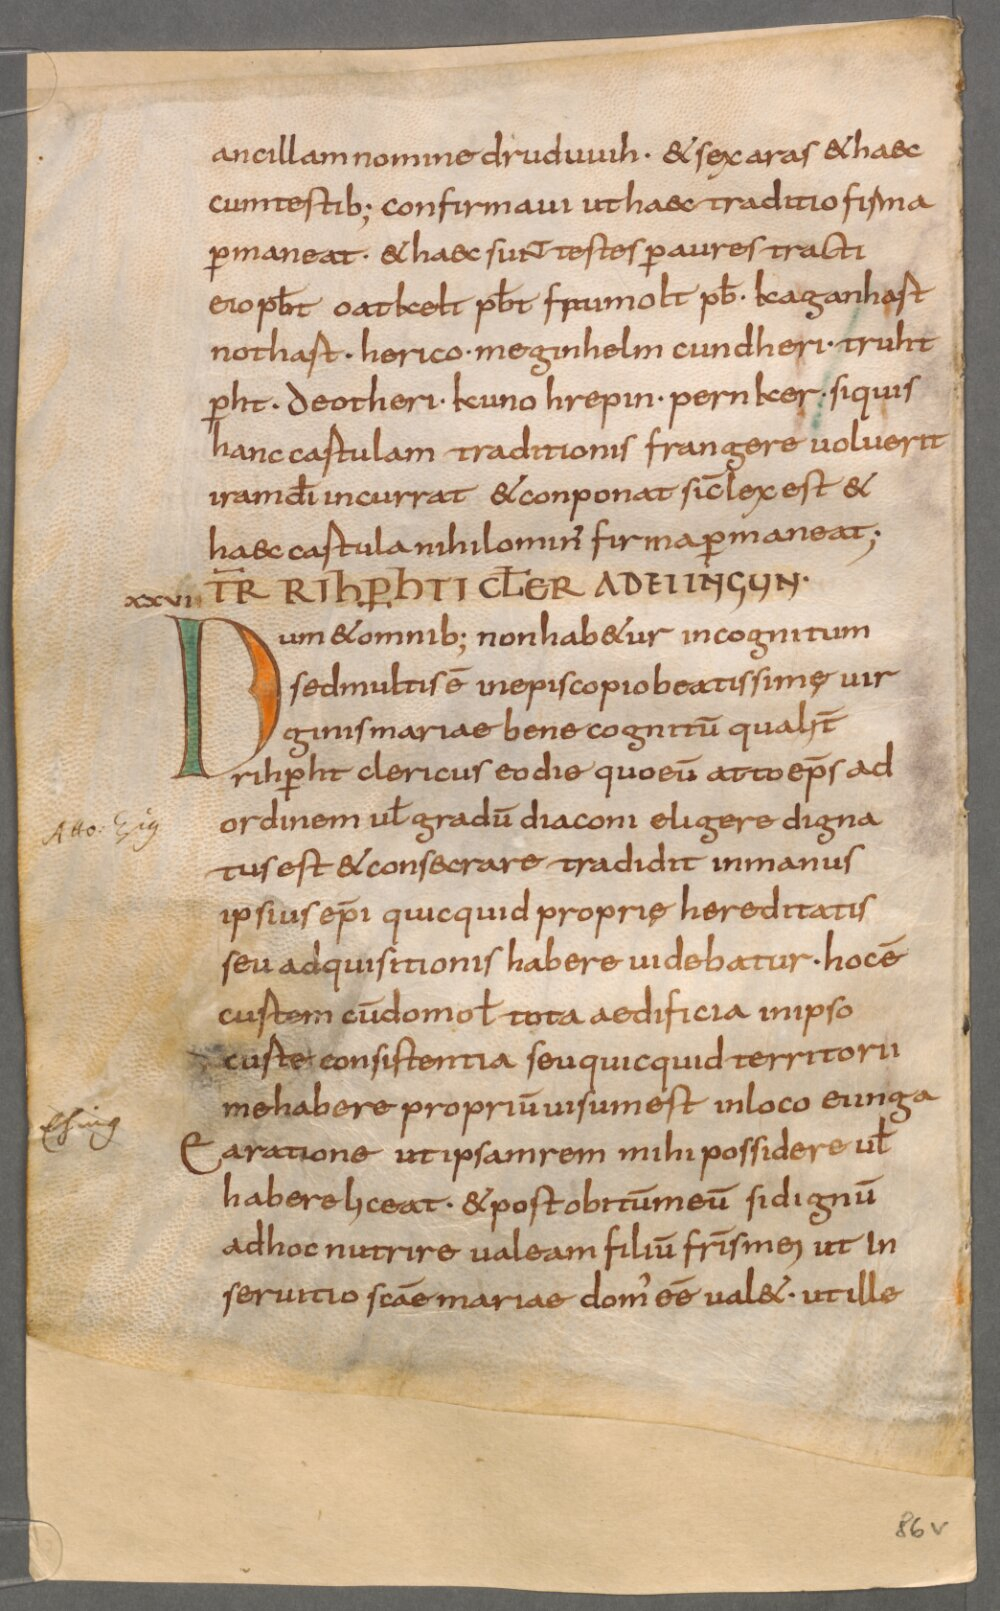 ancillam nomine druduuih · & sex aras & haec
cum testib; confirmaui ut haec traditio firma
p̄maneat · & haec sunt testes p̄ aures tracti
eio pb̄t oatkelt pb̄t frumolt pb̄ · kaganhast
nothast · herico · meginhelm cundheri · truht
p̄ht · deotheri · kuno hrepin · pernker · siquis
hanc castulam traditionis frangere uoluerit
iram dī incurrat & conponat sic̄ lex est &
haec castula nihilomin᾿ firma p̄maneat;
xxvii T̄R RIHP̄HTI CL̄ER ADEIINGUN ·
Dum & omnib; non hab&ur incognitum
sed multis ē in episcopio beatissimę uir
ginis mariae bene cognitū qualit̄
rihp̄ht clericus eo die quo eū atto ep̄s ad
ordinem ul̄ gradū diaconi eligere digna
Atto: Epīs
tus est & consecrare tradidit in manus
ipsius ep̄i quicquid proprię hereditatis
seu adquisitionis habere uidebatur · hoc ē
custem cū domo l̄ tota aedificia in ipso
custe consistentia seu quicquid territorii
me habere propriū uisum est in loco eiinga
Ehing
Ea ratione ut ipsam rem mihi possidere ul̄
habere liceat · & post obitū meū si dignū
ad hoc nutrire ualeam filiū fr̄is mei ut In
seruitio sc̄ae mariae dom᾿ eē ual& · ut ille
86v